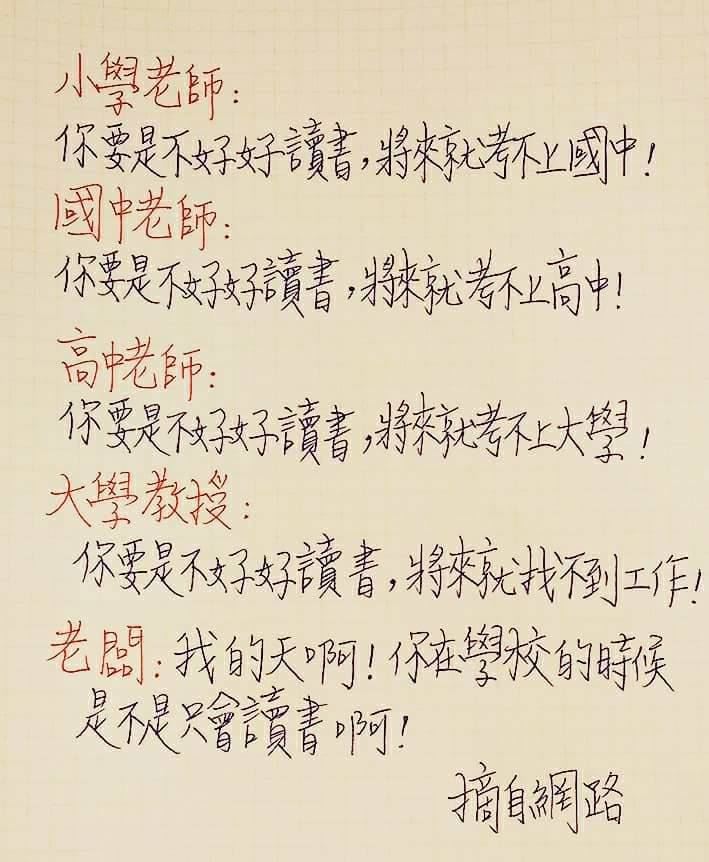 小學老師:
你要是不好好讀書,將來就考不上國中!
國中老師:
你要是不好好讀書,將來就考不上高中!
高中老師:
你要是不好好讀書,將來就考不上大學!
大學教授:
你要是不好好讀書,將來就找不到工作!
老闆:我的天啊!你在學校的時候
是不是只會讀書啊!
摘自網路